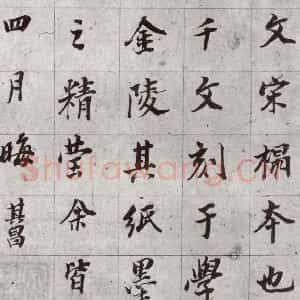 文荣搨本也
千文刻于學
金陵其紙墨
之精瑩余皆
四月晦其昌
Shufawang.cn